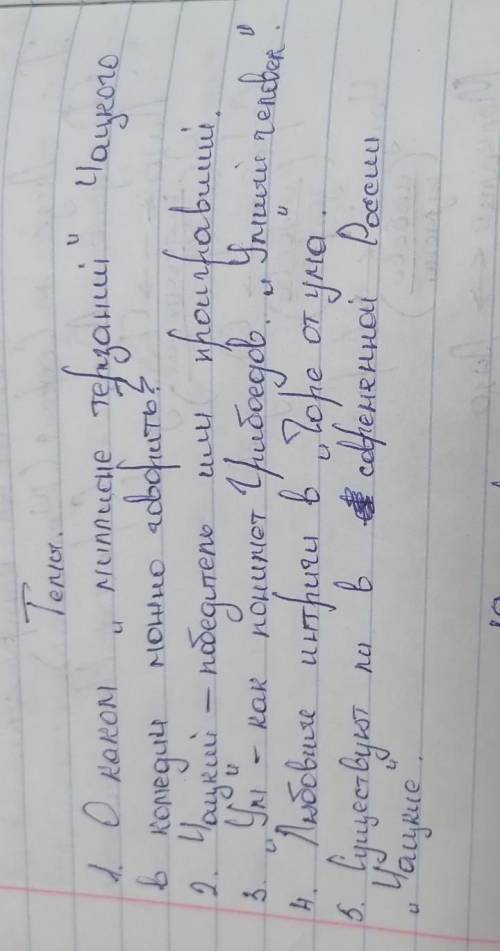 Темы.
1. О каком „миллионе терзаний" Чацкого
в комедии можно говорить?
2. Чацкий – победитель или проигравший.
3. „Ум" – как понимает Грибоедов. „Умный человек".
4. Любовные интриги в „Горе от ума".
5. Существуют ли в современной России
„Чацкие".